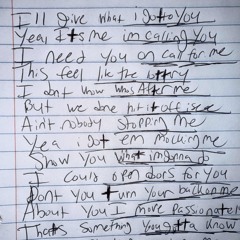 I'll give what i gotto you
Yea, it's me im calling you
I need you on call for me
This feel like the lottery
I dont know whos After me
But we done hit it off
Aint nobody stopping me
Yea i got em mocking me
Show you what im gonna do
I could open doors for you
Dont you turn your back on me
About you I more passionate
Thats something you gotta know